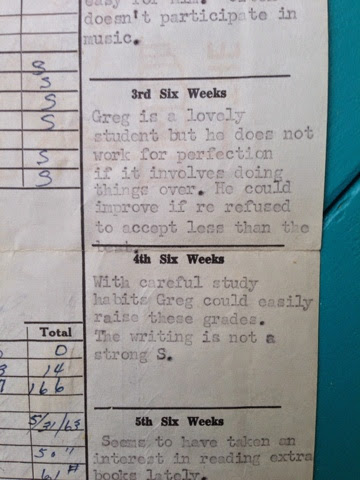 easy for him.
doesn't participate in
music.
3rd Six Weeks
Greg is a lovely
student but he does not
work for perfection
if it involves doing
things over. He could
improve if re refused
to accept less than the
4th Six Weeks
With careful study
habits Greg could easily
raise these grades.
The writing is not a
strong S.
5th Six Weeks
Seems to have taken an
interest in reading extra
books lately.
S
S
S
S
S
S
Total
0
14
166
5/21/63
50"